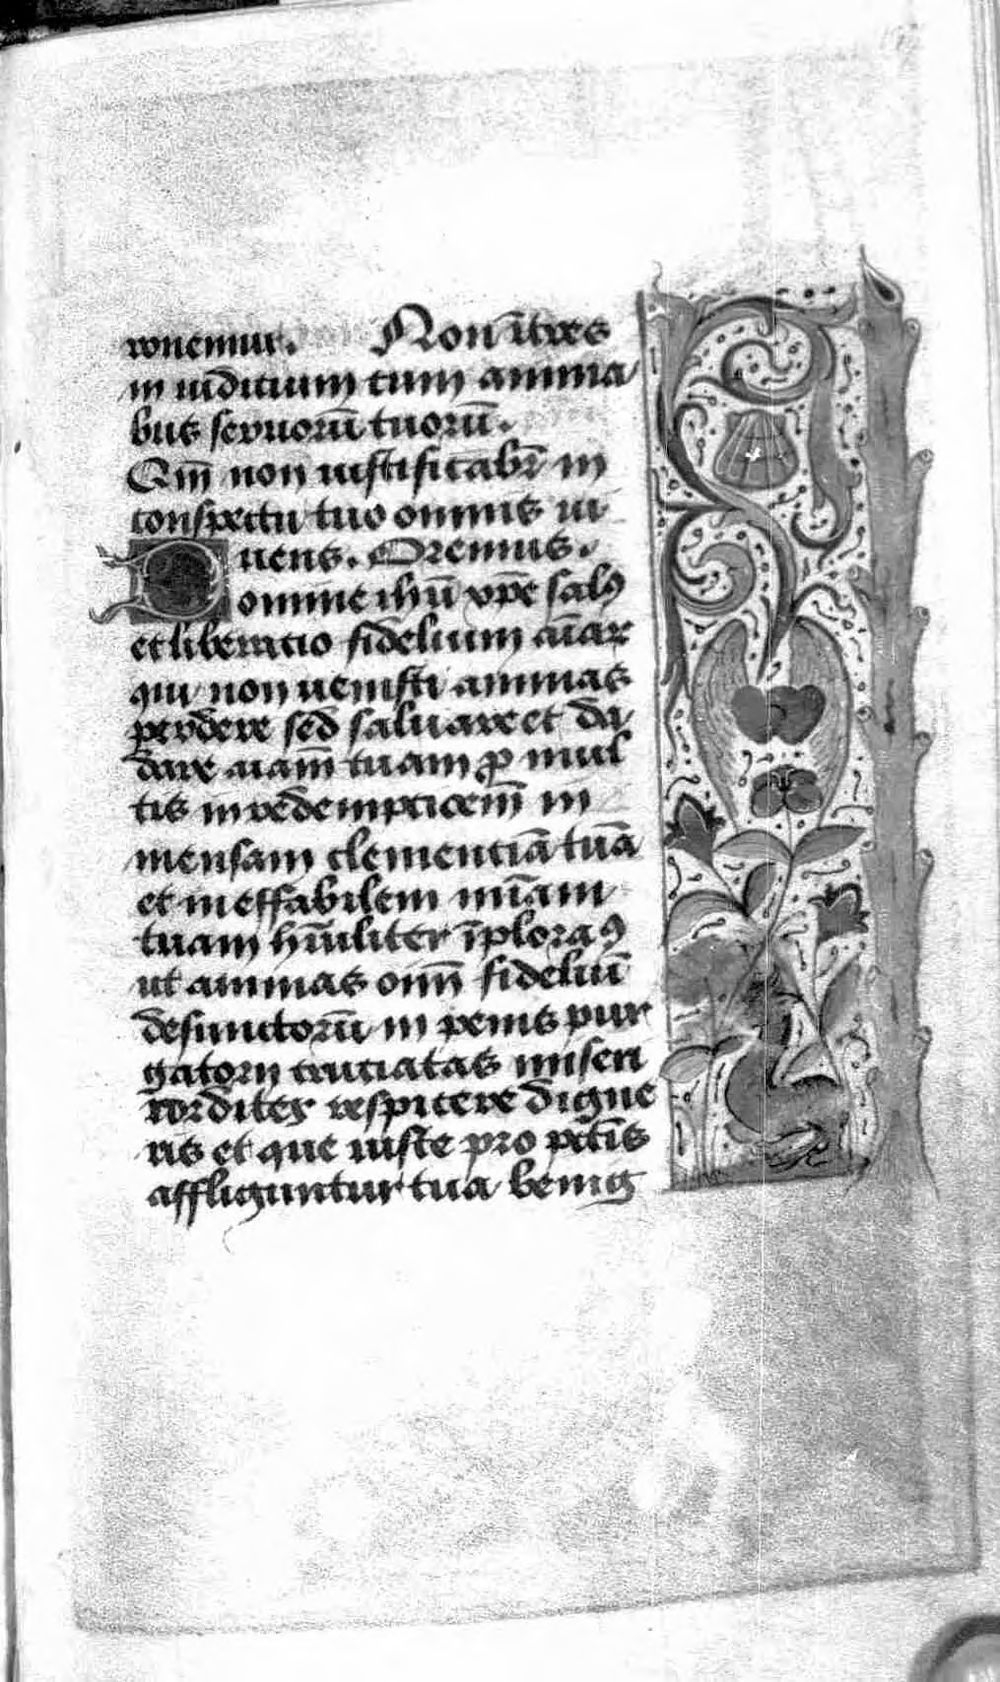 ronemur. Non ītres
in iuditium cum anima
bus seruorū tuorū.
Qm̄ non iustificabr̄ in
conspectu tuo omnis ui
uens. Oremus.
Domine ihū xp̄e salꝰ
et liberatio fidelium aīar
qui non uenisti animas
perdere sed saluare et da
dare aīam tuam ꝓ mul
tis in redemptioem̄ in
mensam clementiā tuā
et ineffabilem mīam
tuam hūiliter īploraꝰ
ut animas om̄ fideliū
defunctorū in penis pur
gatorij cruciatas miseri
corditer respicere digne
ris et que iuste pro pctīs
affliguntur tua benig